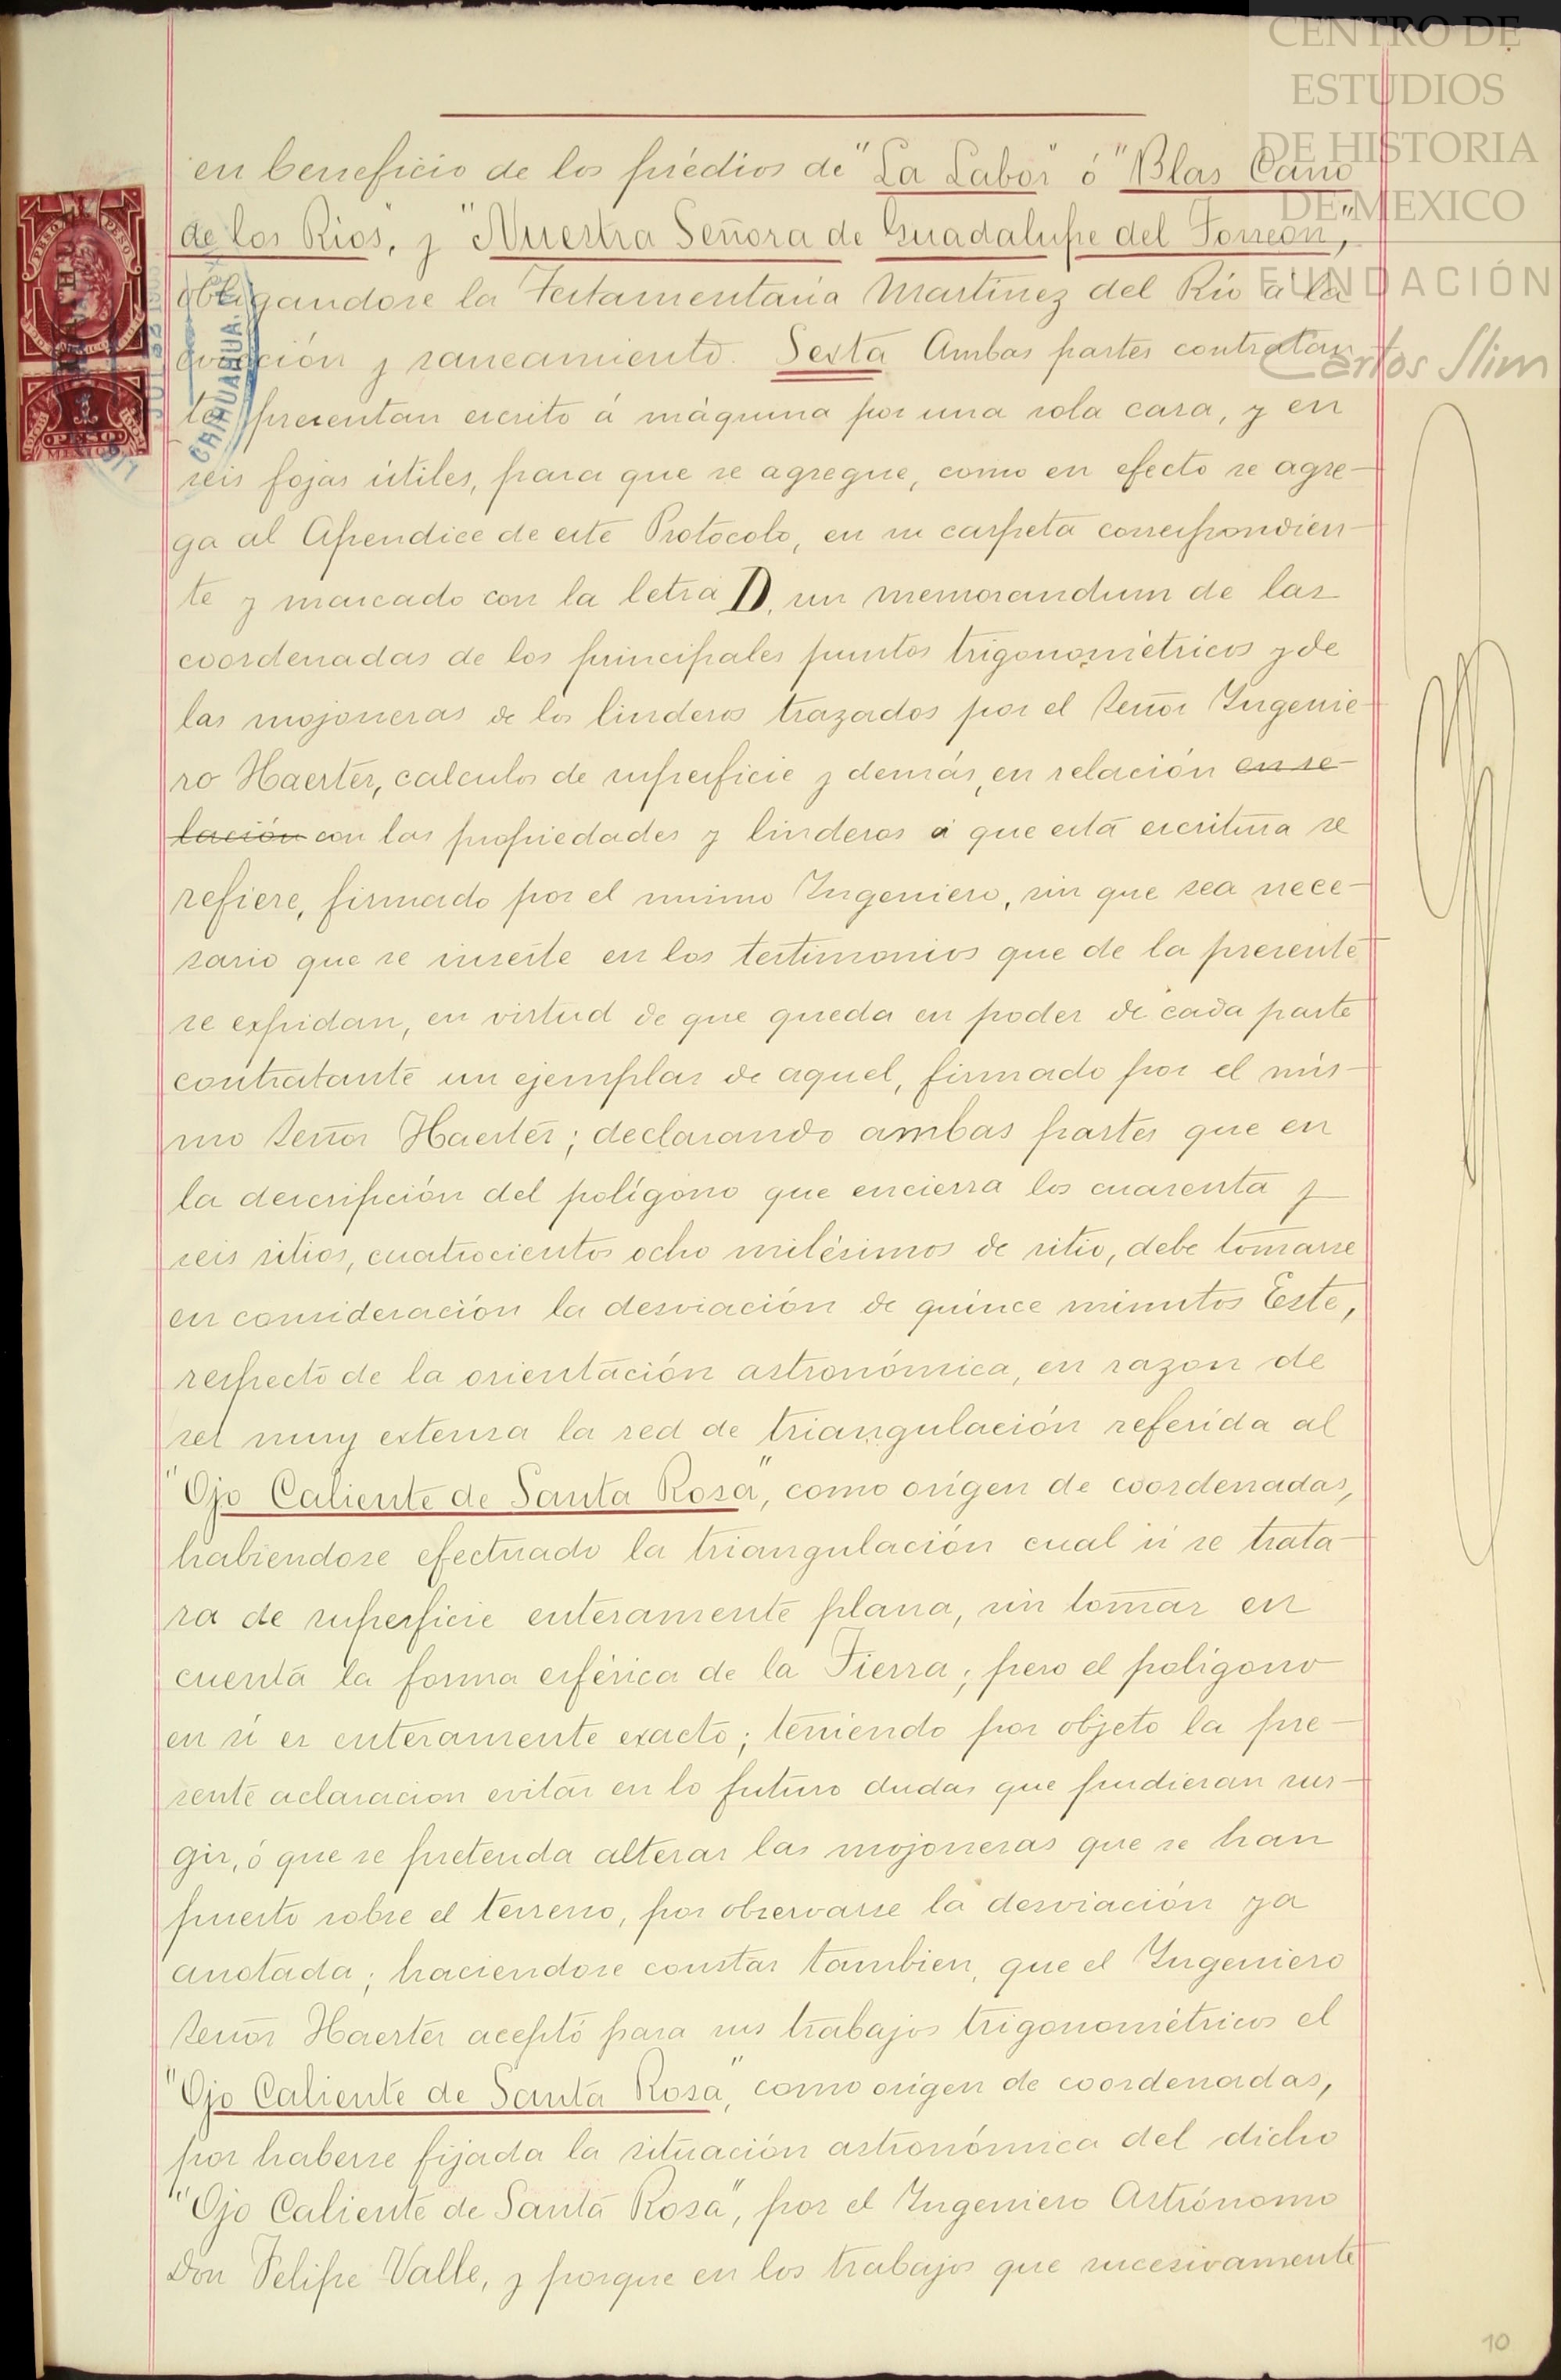 CENTRO DE
ESTUDIOS
DE HISTORIA
DE MEXICO
FUNDACIÓN
Carlos Slim
en beneficio de los prédios de "La Labor" ó "Blas Cano
de los Rios", y "Nuestra Señora de Guadalupe del Torreon",
obligandose la Testamentaria Martinez del Rio a la
evicción y saneamiento. Sexta Ambas partes contratan
te presentan escrito á máquina por una sola cara, y en
seis fojas útiles, para que se agregue, como en efecto se agre-
ga al Apendice de este Protocolo, en su carpeta correspondien-
te y marcado con la letra D, un memorandum de las
coordenadas de los principales puntos trigonométricos y de
las mojoneras de los linderos trazados por el Señor Ingenie-
ro Haerter, calculos de superficie y demás, en relación en re-
lación con las propiedades y linderos a que esta escritura se
refiere, firmado por el mismo Ingeniero, sin que sea nece-
sario que se inserte en los testimonios que de la presente
se expidan, en virtud de que queda en poder de cada parte
contratante un ejemplar de aquel, firmado por el mis-
mo Señor Haerter; declarando ambas partes que en
la descripción del polígono que encierra los cuarenta y
seis sitios, cuatrocientos ocho milésimos de sitio, debe tomarse
en consideración la desviación de quince minutos Este,
respecto de la orientación astronómica, en razon de
ser muy extensa la red de triangulación referida al
"Ojo Caliente de Santa Rosa", como orígen de coordenadas,
habiendose efectuado la triangulación cual si se trata-
ra de superficie enteramente plana, sin tomar en
cuenta la forma esférica de la Tierra; pero el polígono
en sí es enteramente exacto; teniendo por objeto la pre-
sente aclaracion evitar en lo futuro dudas que pudieran sur-
gir, ó que se pretenda alterar las mojoneras que se han
puesto sobre el terreno, por observarse la desviación ya
anotada; haciendose constar tambien, que el Ingeniero
Señor Haerter aceptó para sus trabajos trigonométricos el
"Ojo Caliente de Santa Rosa", como orígen de coordenadas,
por haberse fijada la situación astronómica del dicho
"Ojo Caliente de Santa Rosa", por el Ingeniero Astrónomo
Don Felipe Valle, y porque en los trabajos que sucesivamente
PESO
PESO
1
PESO
MEXICO
CHIHUAHUA,
10